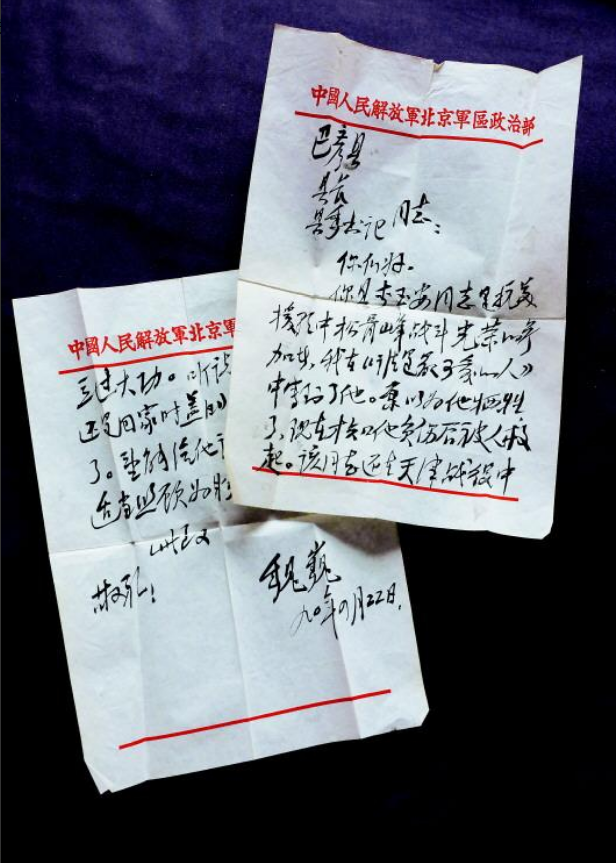 中國人民解放軍北京軍區政治部
巴彦县
县长
县委书记 同志：
你们好。
你县李玉安同志是抗美
援朝中松骨峰战斗光荣的参
加者，我在《谁是最可爱的人》
中写到了他。原以为他牺牲
了，现在他负伤后被人救
起。该同志还在天津战役中
中國人民解放軍北京軍
立过大功。听说
还是回家时盖的
了。望能给他
适当照顾为
此致
敬礼！
魏巍
九〇年四月22日.